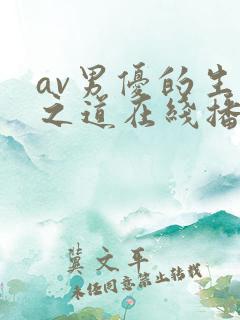 av男優的生
之道在綫播
冀文平
未经同意禁止转载